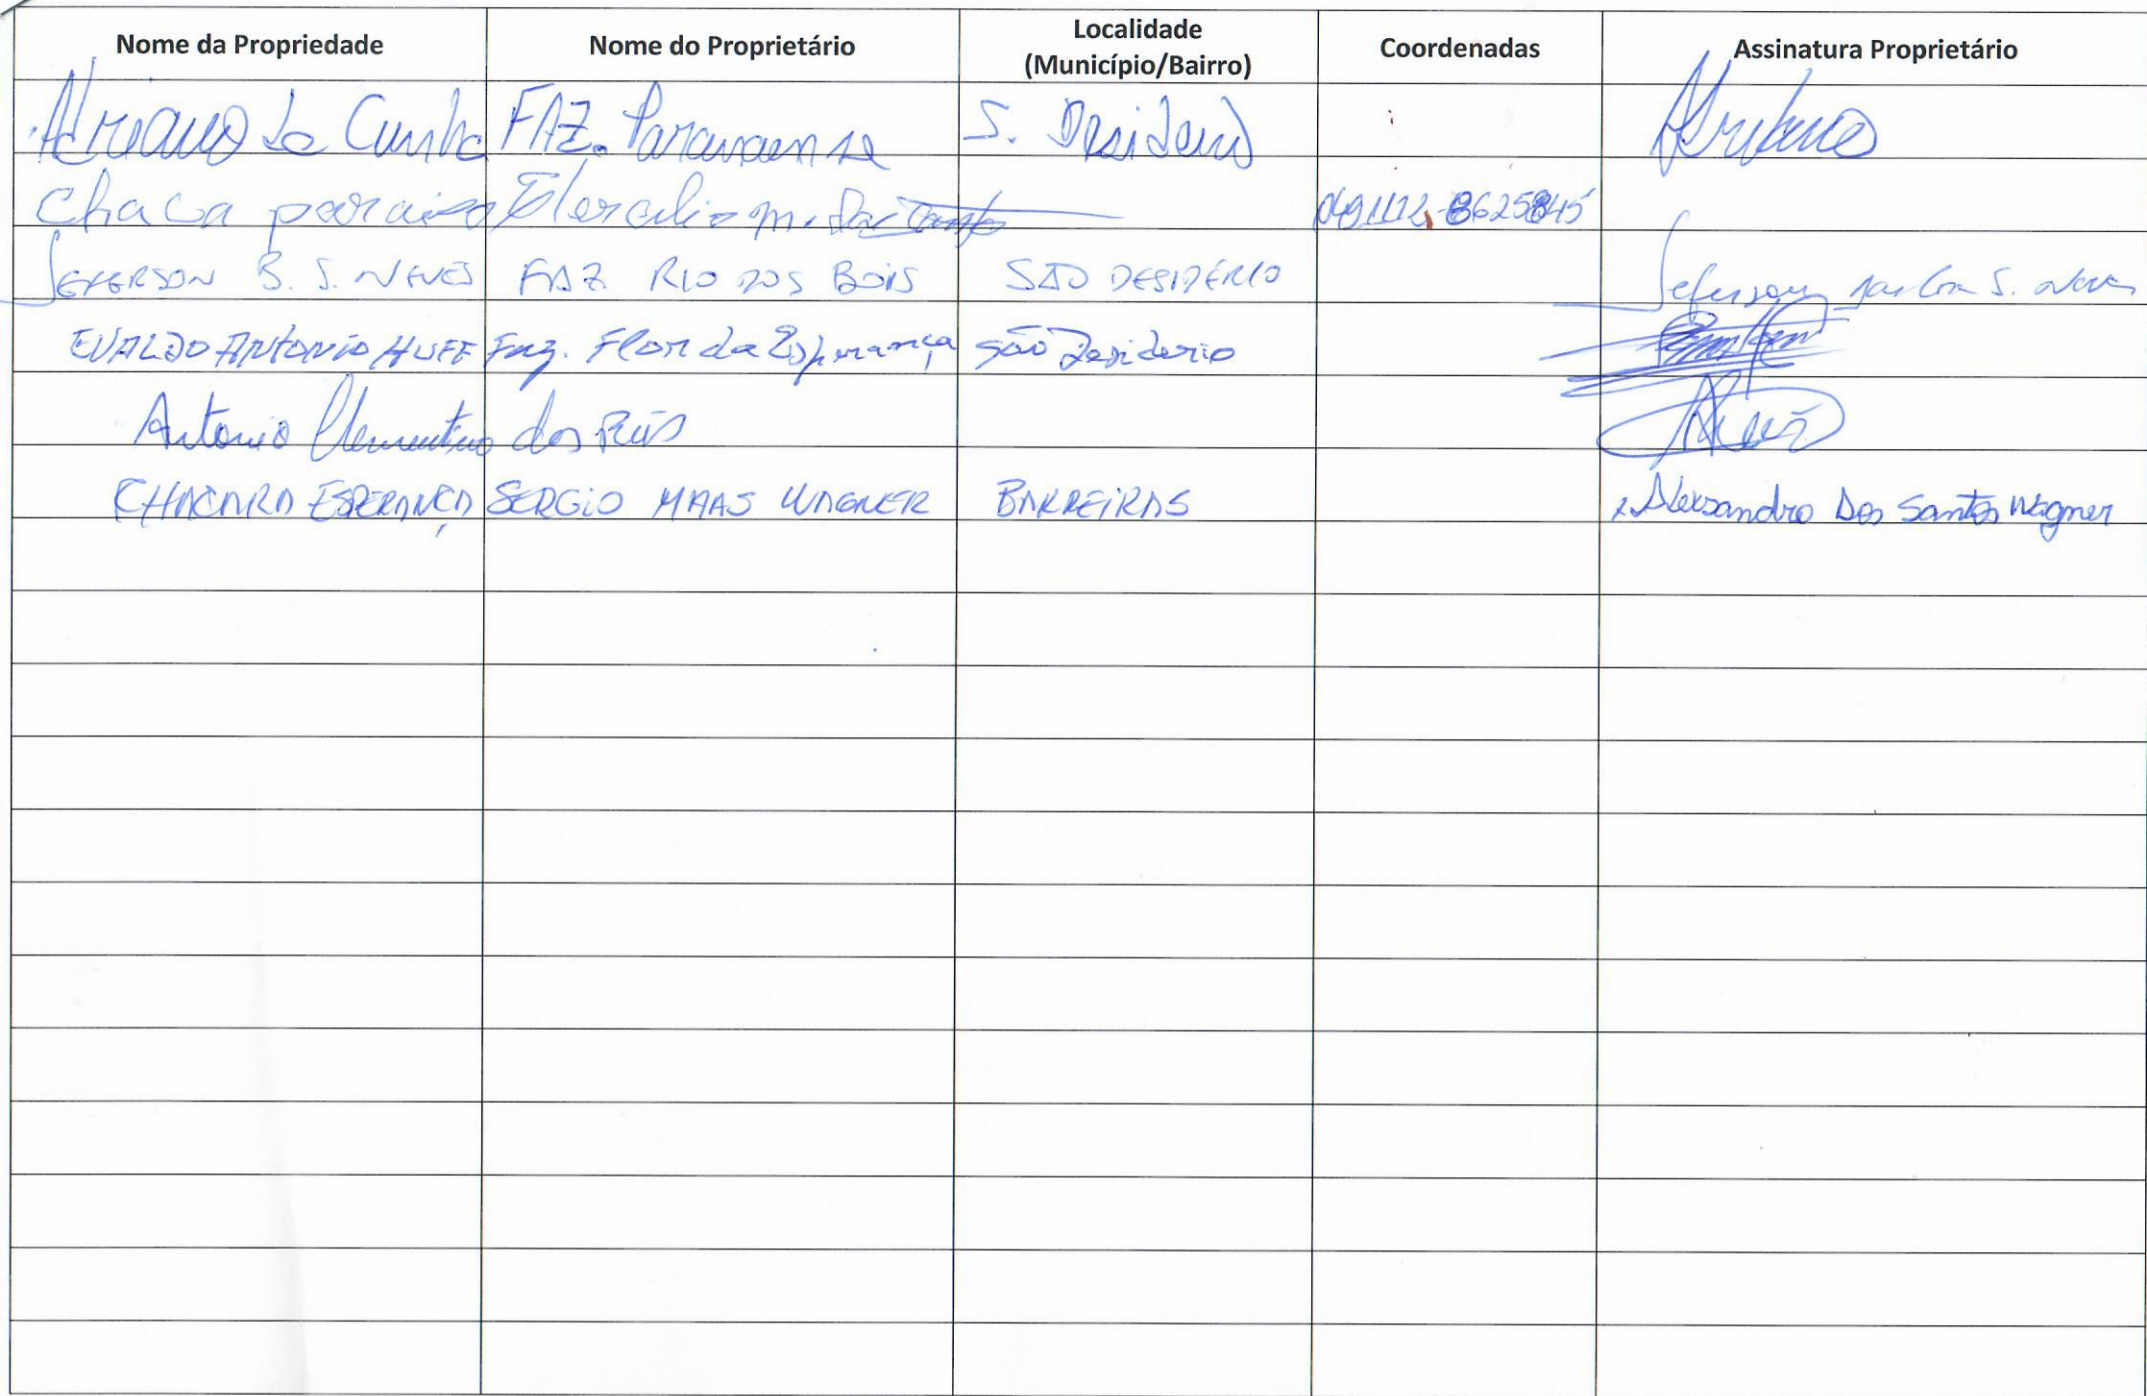 Nome da Propriedade Nome do Proprietário Localidade (Município/Bairro) Coordenadas Assinatura Proprietário
Adriano da Cunha FAZ. Paranaense S. Desiderio
Chaca paraiso Herculio m. dos Santos 0491112, 8625845
JEFERSON B. S. NEVES FAZ RIO DOS BOIS SÃO DESIDÉRIO Jeferson S. Neves
EVALDO ANTONIO HUFF Faz. Flor da Esperança São Desiderio
Antonio Clementino dos Reis
CHACARA ESPERANÇA SERGIO MAAS WAGNER BARREIRAS x Alexsandro Dos Santos Wagner